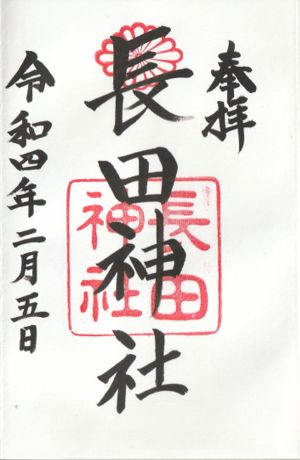 奉拝
長田神社
長田
神社
令和四年二月五日